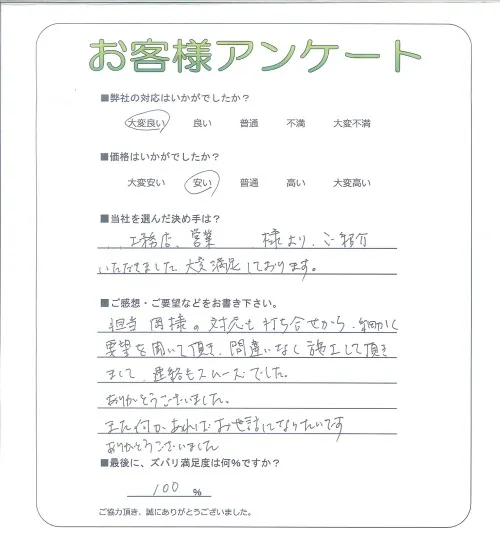 お客様アンケート
■弊社の対応はいかがでしたか？
大変良い 良い 普通 不満 大変不満
■価格はいかがでしたか？
大変安い 安い 普通 高い 大変高い
■当社を選んだ決め手は？
工務店、営業 様より、ご紹介
いただきました。大変満足しております。
■ご感想・ご要望などをお書き下さい。
担当 岡様の対応も打ち合せから、細かく
要望を聞いて頂き、間違いなく施工して頂き
まして、連絡もスムーズでした。
ありがとうございました。
また何かあればお世話になりたいです
ありがとうございました
■最後に、ズバリ満足度は何％ですか？
100 ％
ご協力頂き、誠にありがとうございました。